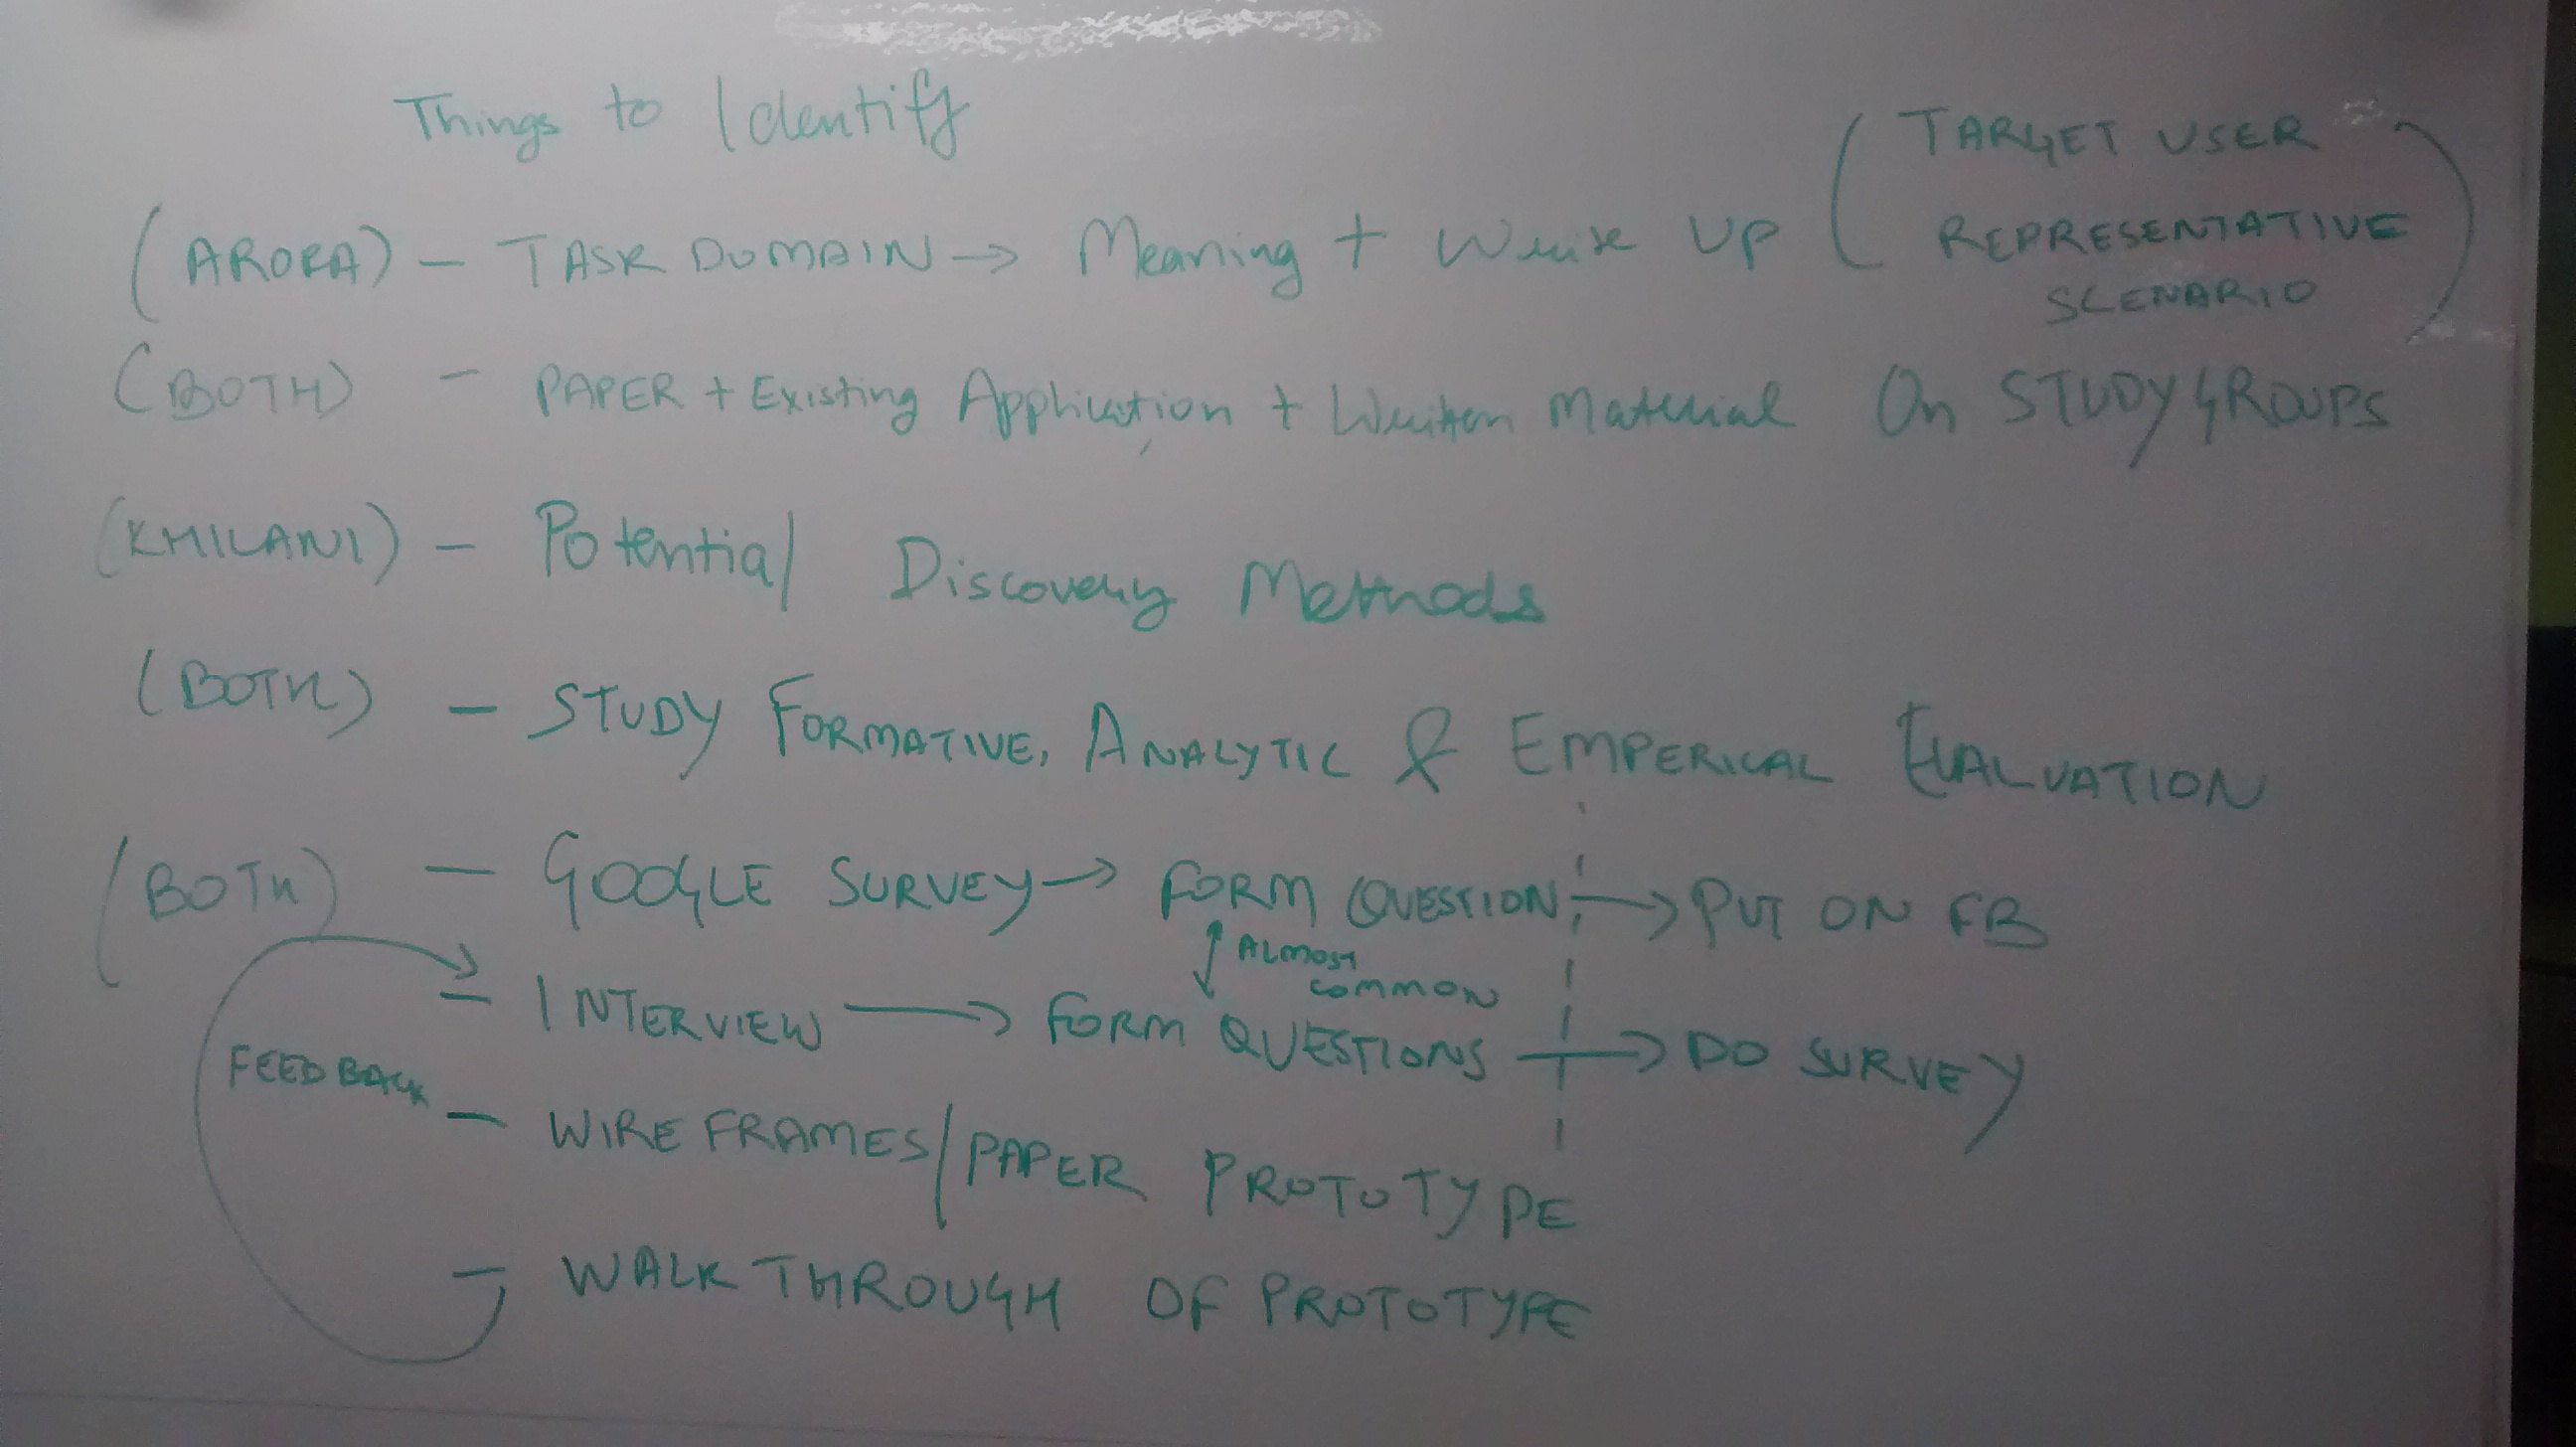 Things to Identify
(ARORA) - TASK DOMAIN → Meaning + Write UP (TARGET USER
REPRESENTATIVE
SCENARIO)
(BOTH) - PAPER + Existing Application + Written Material On STUDY GROUPS
(KHILANI) - Potential Discovery Methods
(BOTH) - STUDY FORMATIVE, ANALYTIC & EMPERICAL EVALUATION
(BOTH) - GOOGLE SURVEY → FORM QUESTION, → PUT ON FB
ALMOST
COMMON
- INTERVIEW → FORM QUESTIONS → DO SURVEY
FEEDBACK
- WIRE FRAMES/PAPER PROTOTYPE
- WALK THROUGH OF PROTOTYPE